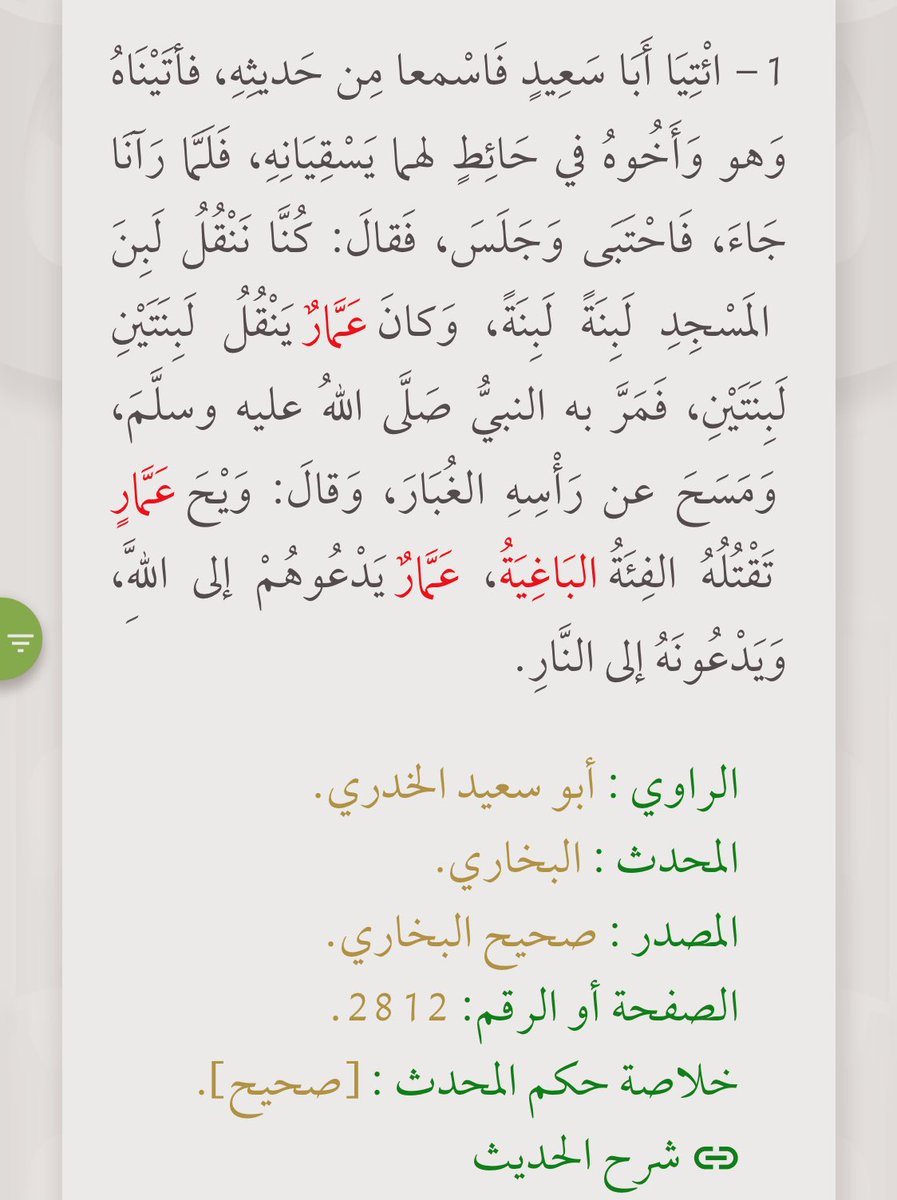 1 – ائْتِيَا أَبَا سَعِيدٍ فَاسْمعا مِن حَديثِهِ، فأتَيْنَاهُ
وَهو وَأَخُوهُ في حَائِطٍ لهما يَسْقِيَانِهِ، فَلَمَّا رَآنَا
جَاءَ، فَاحْتَبَى وَجَلَسَ، فَقالَ: كُنَّا نَنْقُلُ لَبِنَ
المَسْجِدِ لَبِنَةً لَبِنَةً، وَكانَ عَمَّارٌ يَنْقُلُ لَبِنَتَيْنِ
لَبِنَتَيْنِ، فَمَرَّ به النبيُّ صَلَّى اللهُ عليه وسلَّمَ،
وَمَسَحَ عن رَأْسِهِ الغُبَارَ، وَقالَ: وَيْحَ عَمَّارٍ
تَقْتُلُهُ الفِئَةُ البَاغِيَةُ، عَمَّارٌ يَدْعُوهُمْ إلى اللَّهِ،
وَيَدْعُونَهُ إلى النَّارِ.
الراوي : أبو سعيد الخدري.
المحدث : البخاري.
المصدر : صحيح البخاري.
الصفحة أو الرقم: 2812.
خلاصة حكم المحدث : [صحيح].
شرح الحديث